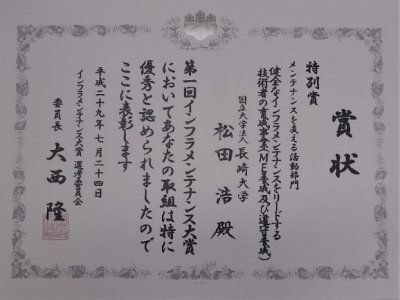 賞状
特別賞
メンテナンスを支える活動部門
健全なインフラメンテナンスをリードする
技術者の育成事業(ME養成及び道守養成)
国立大学法人 長崎大学
松田 浩 殿
第一回インフラメンテナンス大賞
においてあなたの取組は特に
優秀と認められましたので
ここに表彰します
平成二十九年 七月二十四日
インフラメンテナンス大賞 選考委員会
委員長 大西 隆